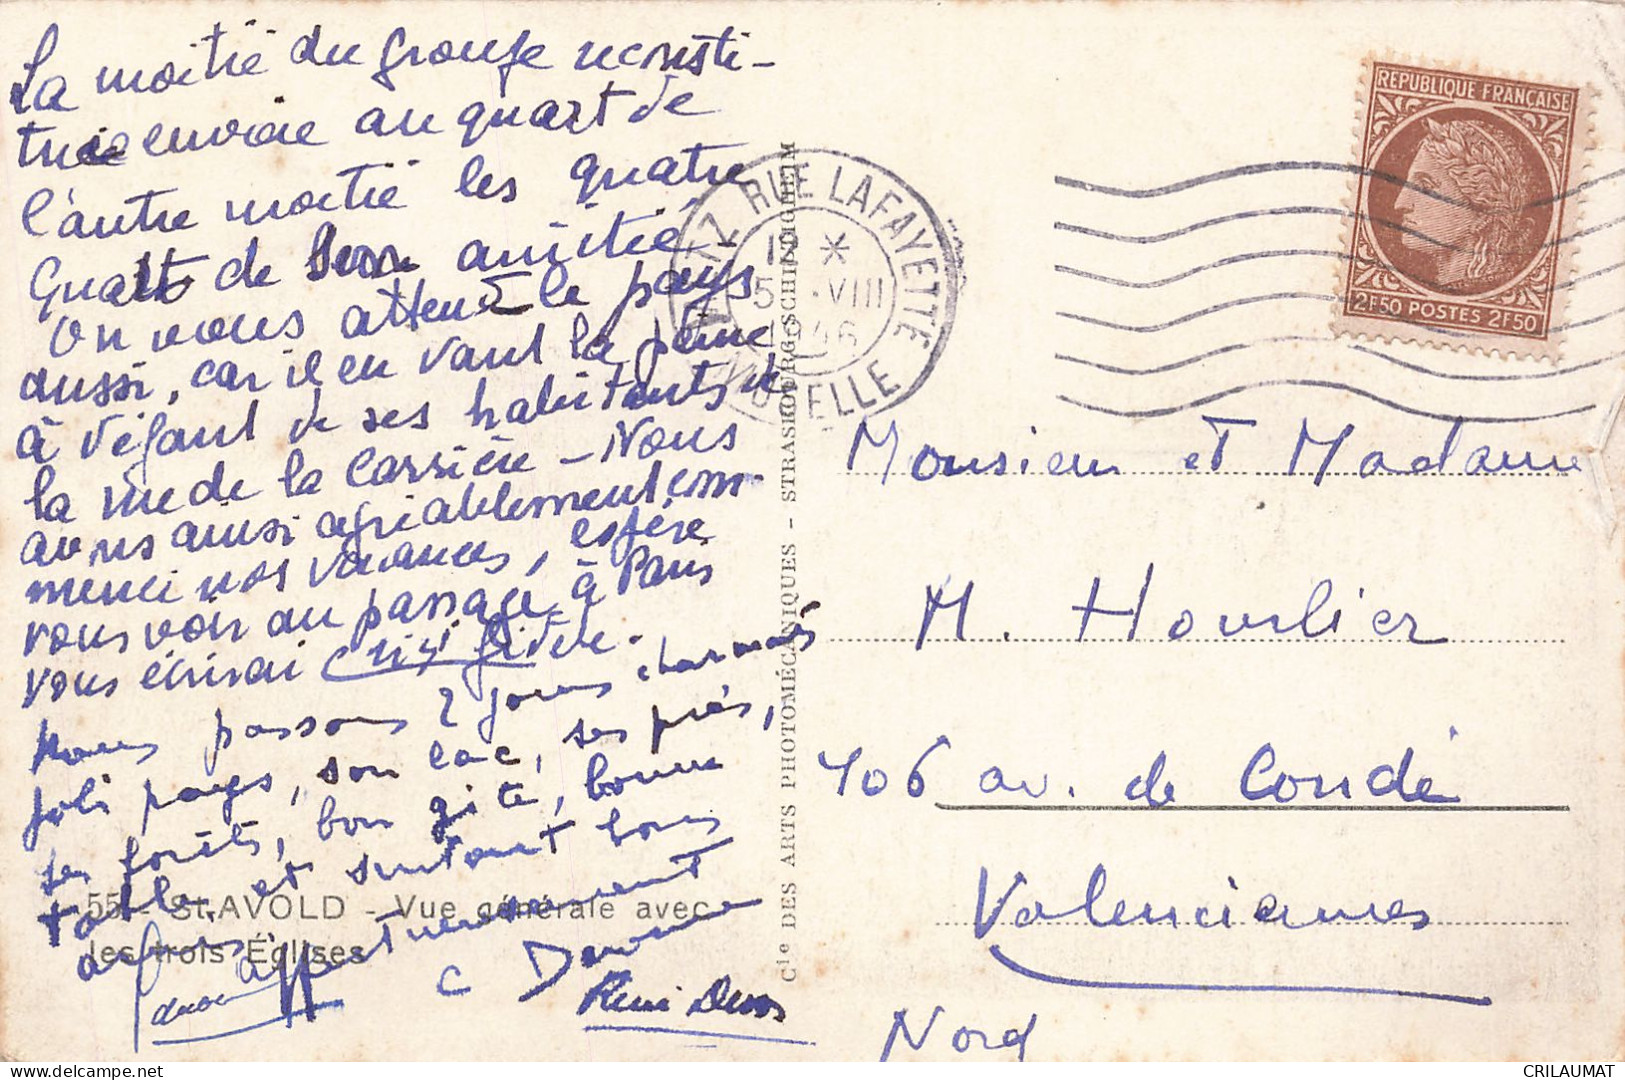 La moitié du groupe reconsti-
tuée envoie au quart de
l'autre moitié les quatre
quarts de son amitié -
On vous attend le pays
aussi, car il en vaut la peine
à l'égard de ses habitants et
la vue de la Carrière - Nous
avons ainsi agréablement com-
mencé nos vacances, espère
vous voir au passage à Paris
vous écrirai
Nous passons 2 jours charmants
joli pays, son lac, ses prés,
ses forêts, bon gîte, bonne
table, et surtout bons
René
Monsieur et Madame
M. Hourlier
106 av. de Condé
Valenciennes
Nord
REPUBLIQUE FRANÇAISE
2F50 POSTES 2F50
METZ RUE LAFAYETTE
MOSELLE
55 - St.AVOLD - Vue générale avec
les trois Églises
Cie DES ARTS PHOTOMÉCANIQUES - STRASBOURG-SCHILTIGHEIM
CRILAUMAT